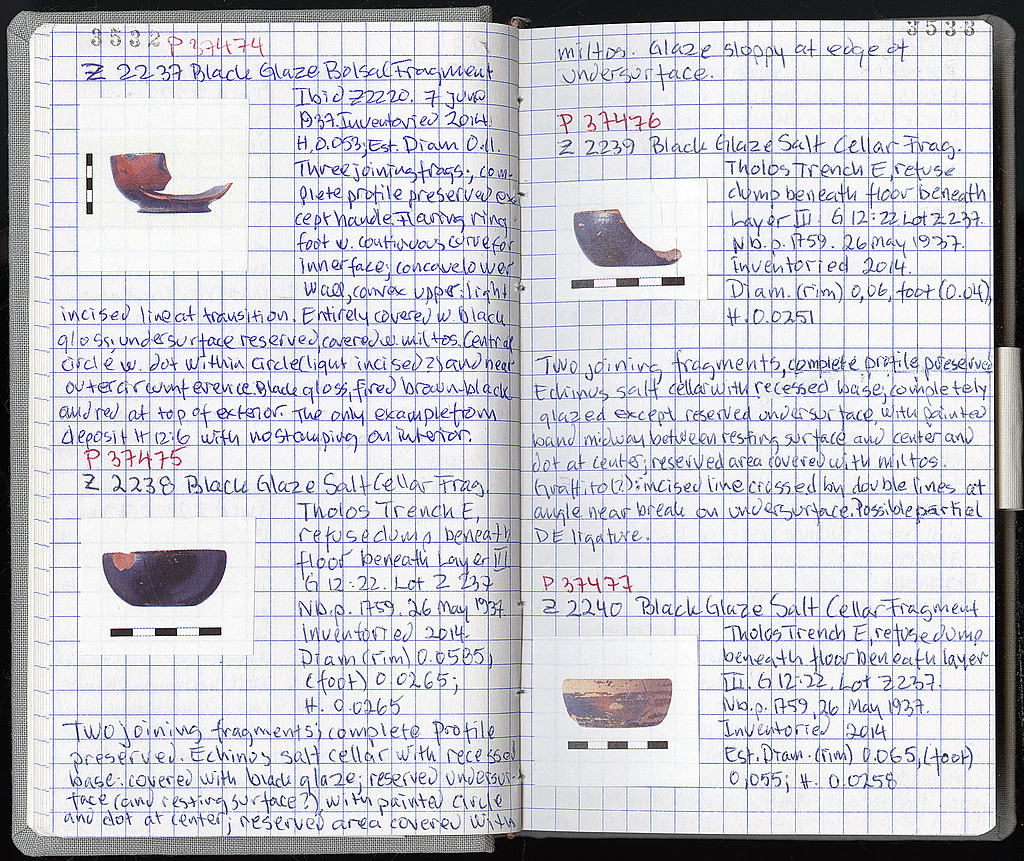 3532 P 37474
Z 2237 Black Glaze Bolsal Fragment
Ibid Z2220. 7 June
1937. Inventoried 2014.
H. 0.053; Est. Diam 0.11.
Three joining frags., com-
plete profile preserved ex-
cept handle. Flaring ring
foot w. continuous curve for
inner face; concave lower
wall, convex upper: light
incised line at transition. Entirely covered w. Black
gloss; undersurface reserved, covered w. miltos. Central
circle w. dot within circle (light incised?) and near
outer circumference. Black gloss, fired brown-black
and red at top of exterior. The only example from
deposit H 12:6 with no stamping on interior.
P 37475
Z 2238 Black Glaze Salt Cellar Frag.
Tholos Trench E,
refuse dump beneath
floor beneath Layer III
G 12:22. Lot Z 237
Nb.p. 1759. 26 May 1937
Inventoried 2014
Diam (rim) 0.0585,
(foot) 0.0265;
H. 0.0265
Two joining fragments; complete profile
preserved. Echinos salt cellar with recessed
base: covered with black glaze; reserved undersur-
face (and resting surface?), with painted circle
and dot at center; reserved area covered with
3533
miltos. Glaze sloppy at edge of
undersurface.
P 37476
Z 2239 Black Glaze Salt Cellar Frag.
Tholos Trench E, refuse
dump beneath floor beneath
Layer III. G 12:22 Lot Z 237.
Nb.p. 1759. 26 May 1937.
Inventoried 2014.
Diam. (rim) 0,06, foot (0.04),
H. 0.0251
Two joining fragments, complete profile preserved
Echinus salt cellar with recessed base; completely
glazed except reserved undersurface, with painted
band midway between resting surface and center and
dot at center; reserved area covered with miltos.
Graffito(?): incised line crossed by double lines at
angle near break on undersurface. Possible partial
DE ligature.
P 37477
Z 2240 Black Glaze Salt Cellar Fragment
Tholos Trench E, refuse dump
beneath floor beneath layer
III. G 12:22. Lot Z 237.
Nb.p. 1759, 26 May 1937.
Inventoried 2014
Est. Diam. (rim) 0.065, (foot)
0,055; H. 0.0258